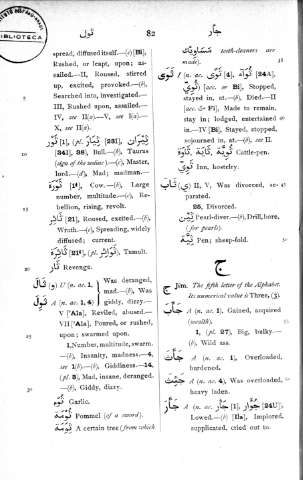 ثول
82
جأر
BIBLIOTECA
spread, diffused itself.—(c) [Bi],
Rushed, or leapt, upon; as-
sailed.—II, Roused, stirred
up, excited, provoked.—(b),
Searched into, investigated.—
III, Rushed upon, assailed.—
IV, see II(a).—V, see I(a).—
X, see II(a).
ثَوْر [1], (pl. ثِيرَان [23I],
[34I], 26), Bull.—(b), Taurus
(sign of the zodiac).—(c), Master,
lord.—(d), Mad; madman.—
ثَوْرَة [1t], Cow.—(b), Large
number, multitude.—(c), Re-
bellion, rising, revolt.
ثَائِر [21], Roused, excited.—(b),
Wrath.—(c), Spreading, widely
diffused; current.
ثَائِرَة [21t], (pl. 25), Tumult.
ثار Revenge.
(ثَال) U (n. ac. 1, Was deranged,
mad.—(b), Was
ثَوِل A (n. ac. 1, 4) giddy, dizzy.—
V ['Ala], Reviled, abused.—
VII ['Ala], Poured, or rushed,
upon; swarmed upon.
1, Number, multitude, swarm.
—(b), Insanity, madness.—4,
see 1(b).—(b), Giddiness.—14,
(pl. 3), Mad, insane, deranged.
—(b), Giddy, diary.
ثُوم Garlic.
ثُومَة Pommel (of a sword).
ثُومَة A certain tree (from which
مَسَاوِيك teeth-cleaners are
made).
ثَوَى I (n. ac. ثَوَاء [4], [24A],
[acc. or Bi], Stopped,
stayed in, at.—(b), Died.—II
[acc. & Fi], Made to remain,
stay in; lodged, entertained
in.—IV [Bi], Stayed, stopped,
sojourned in, at.—(b), see II.
ثُوَّة, ثَايَة, ثَوِيَّة Cattle-pen.
Inn, hostelry.
(ثَيَّب) II, V, Was divorced, se-
parated.
26, Divorced.
Pearl-diver.—(b), Drill, bore,
(for pearls).
Pen; sheep-fold.
ج
ج Jim. The fifth letter of the Alphabet.
Its numerical value is Three, (3).
جَأَبَ A (n. ac. 1), Gained, acquired
(wealth).
1, (pl. 27), Big, bulky.—
(b), Wild ass.
جَأَثَ A (n. ac. 1), Overloaded,
burdened.
جَئِثَ A (n. ac. 4), Was overloaded,
heavy laden.
جَأَرَ A (n. ac. جَأْر [1], جُؤَار [24U]),
Lowed.—(b) [Ila], Implored,
supplicated, cried out to.